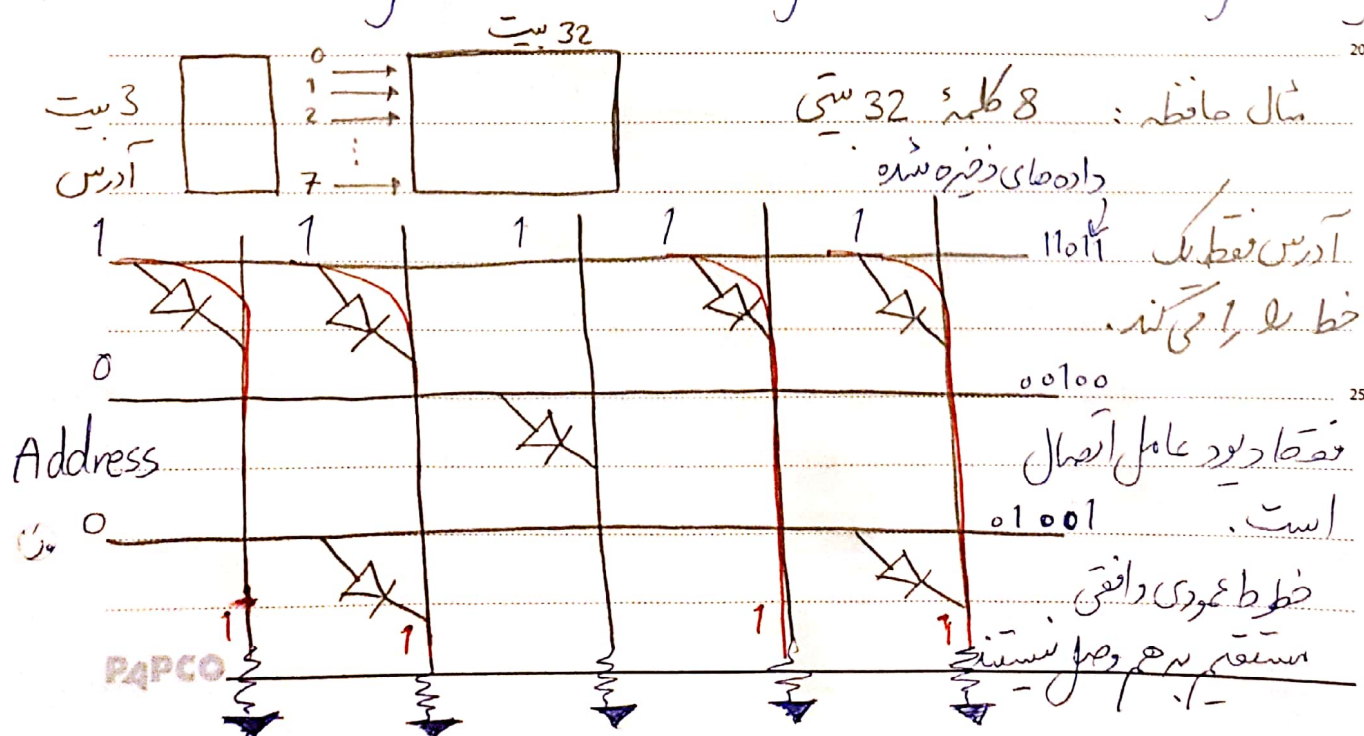 32 بیت
مثال حافظه : 8 کلمهٔ 32 بیتی
3 بیت
آدرس
0
1
2
7
داده‌های ذخیره شده
1 1 1 1 1
11011
آدرس فقط یک
خط را 1 می‌کند.
0
00100
Address
فقط دیود عامل اتصال
است.
0
01001
خطوط عمودی و افقی
مستقیم به هم وصل نیستند
1 1 1 1
PAPCO
20
25